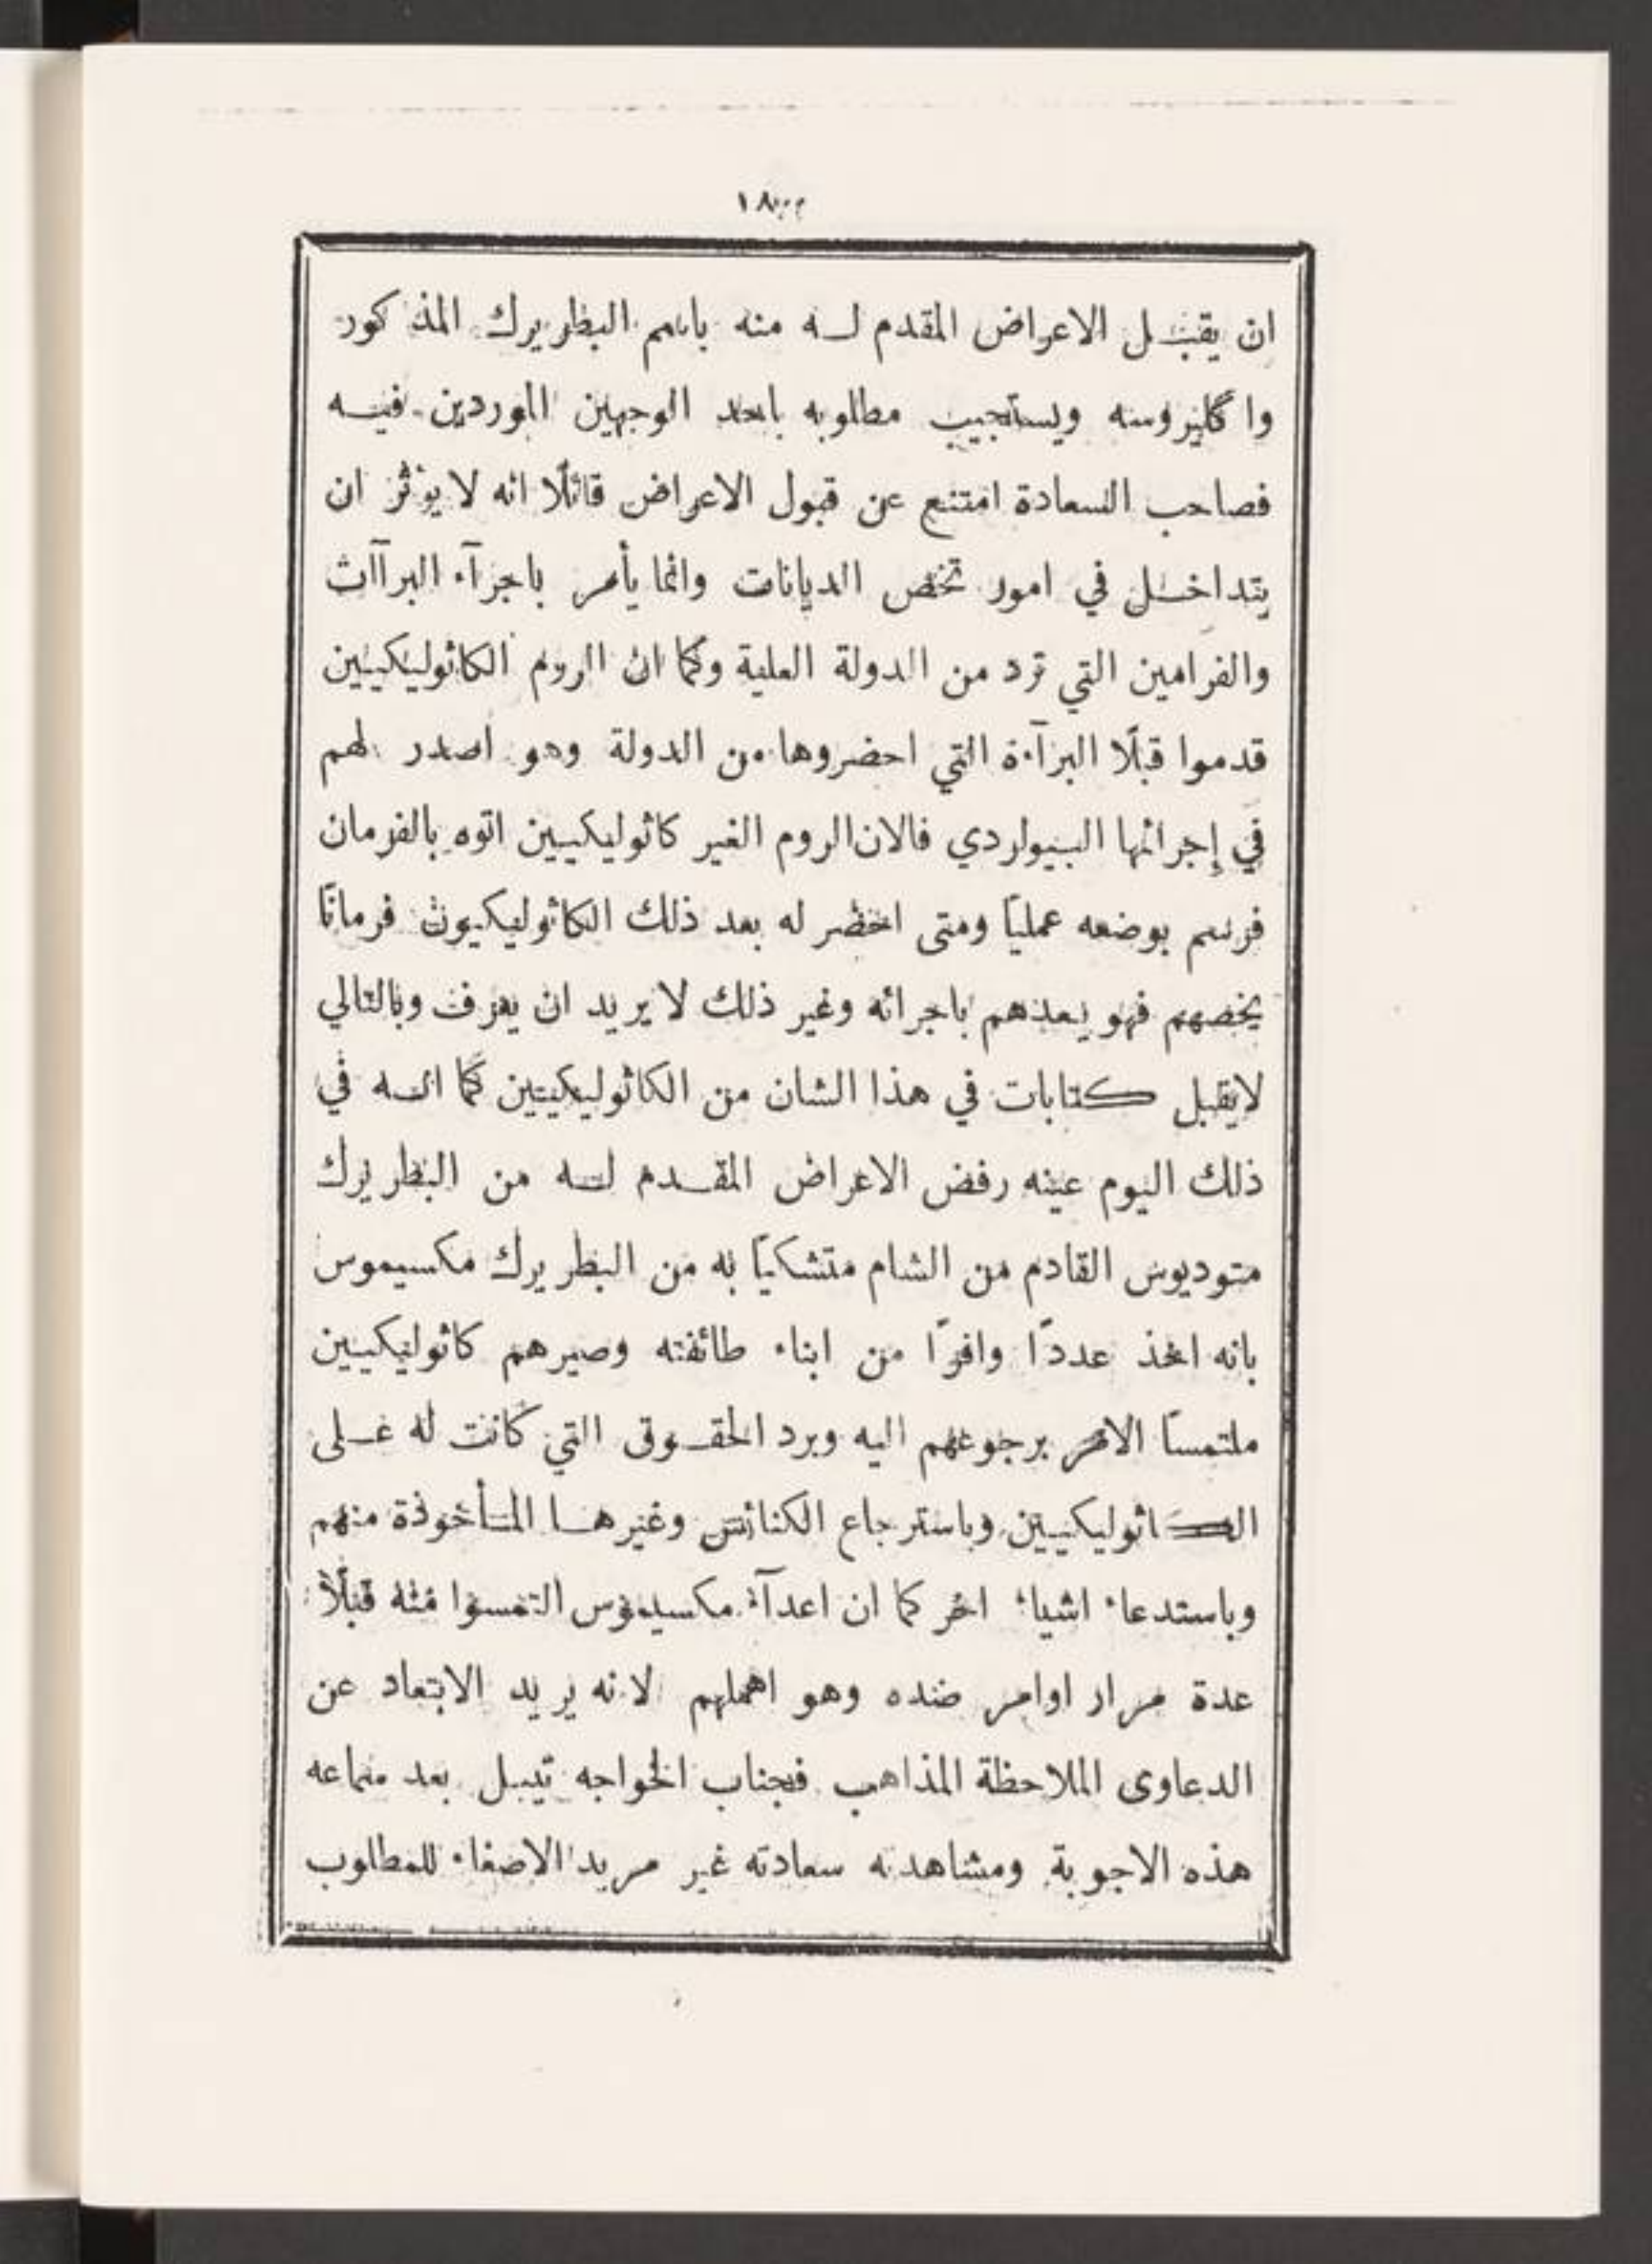 ان يقبل الاعراض المقدم له منه باسم البطريرك المذكور
واكليروسه ويستجيب مطلوبه باحد الوجهين الموردين فيه
فصاحب السعادة امتنع عن قبول الاعراض قائلًا انه لا يوثر ان
يتداخل في امور تخص الديانات وانما يأمر باجرآء البرآات
والفرامين التي ترد من الدولة العلية وكما ان الروم الكاثوليكيين
قدموا قبلًا البرآءة التي احضروها من الدولة وهو اصدر لهم
في إجرائها البيولردي فالان الروم الغير كاثوليكيين اتوه بالفرمان
فرسم بوضعه عمليًا ومتى احضر له بعد ذلك الكاثوليكيون فرمانًا
يخصهم فهو يعدهم باجرائه وغير ذلك لا يريد ان يعرف وبالتالي
لايقبل كتابات في هذا الشان من الكاثوليكيين كما انه في
ذلك اليوم عينه رفض الاعراض المقدم له من البطريرك
متوديوس القادم من الشام متشكيًا به من البطريرك مكسيموس
بانه اخذ عددًا وافرًا من ابناء طائفته وصيرهم كاثوليكيين
ملتمسًا الامر برجوعهم اليه وبرد الحقوق التي كانت له على
الكاثوليكيين وباسترجاع الكنائس وغيرها المأخوذة منهم
وباستدعاء اشياء اخر كما ان اعدآء مكسيموس التمسوا منه قبلًا
عدة مرار اوامر ضده وهو اهملهم لانه يريد الابتعاد عن
الدعاوى الملاحظة المذاهب فجناب الخواجه تيبل بعد سماعه
هذه الاجوبة ومشاهدته سعادته غير مريد الاصغاء للمطلوب